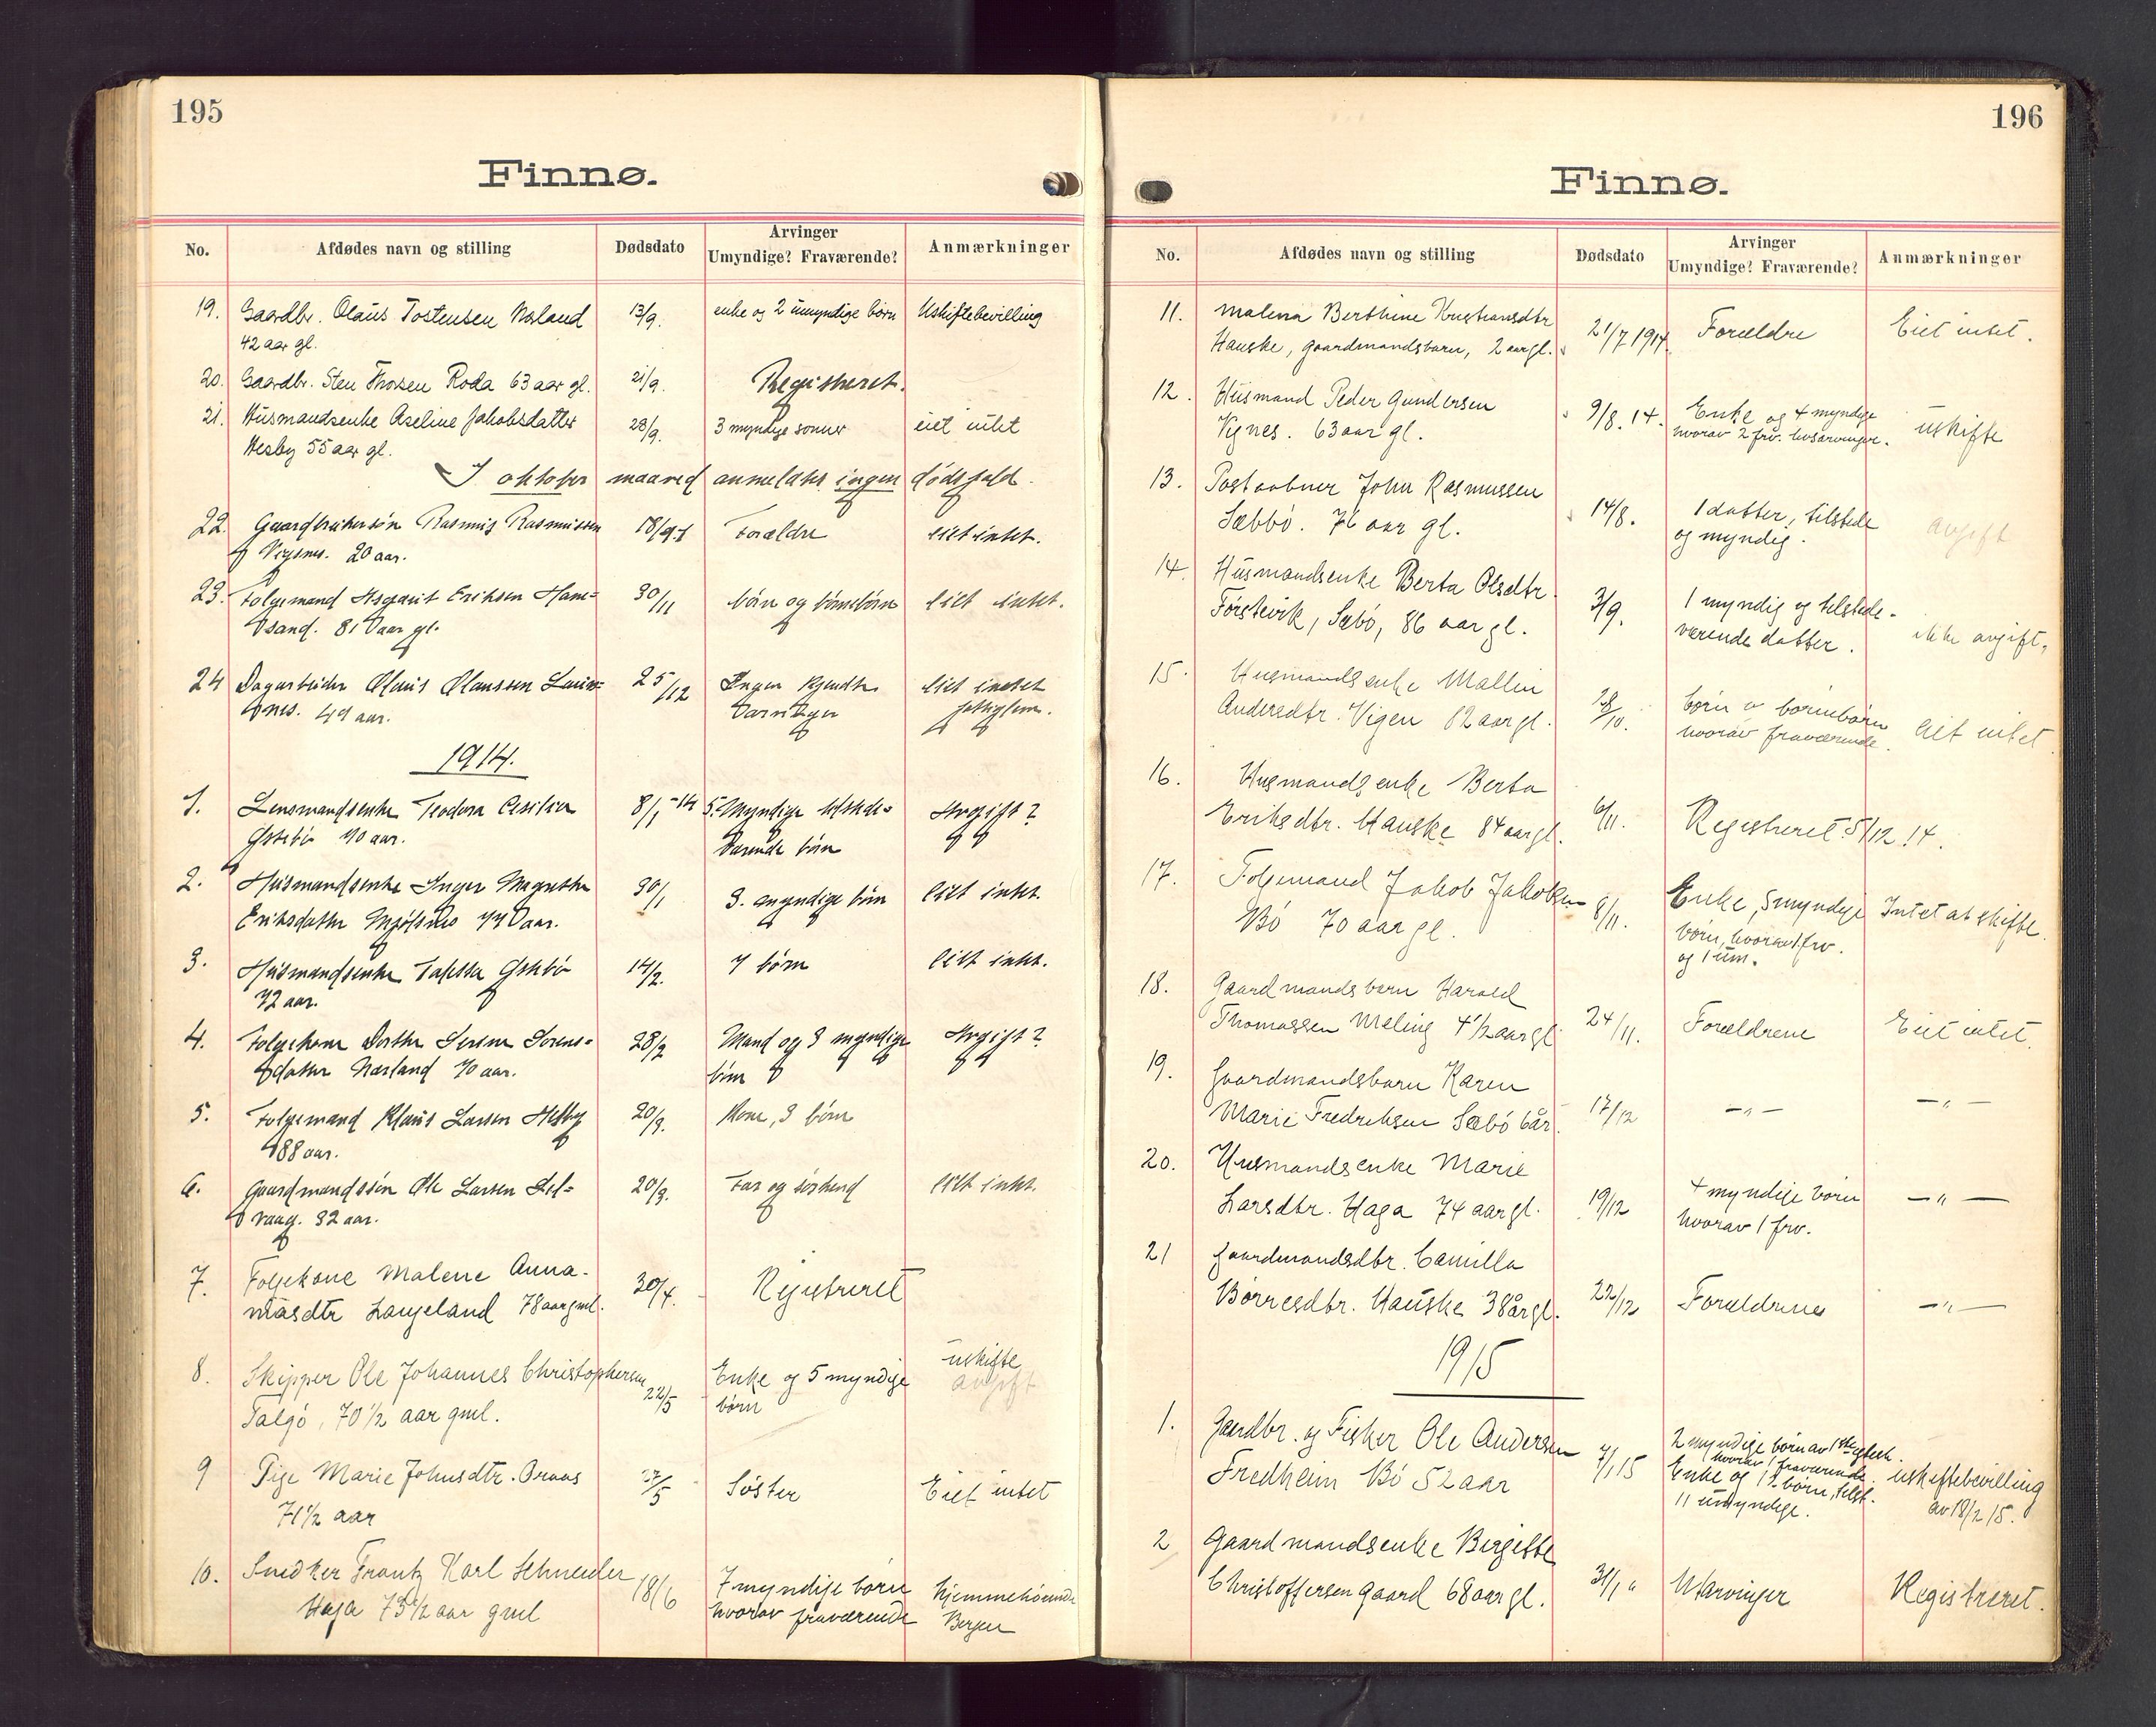 195
Finnø.
No. Afdødes navn og stilling Dødsdato Arvinger Umyndige? Fraværende? Anmærkninger
19. Gaardbr. Olaus Tostensen Naland 13/9. enke og 2 umyndige börn Uskiftebevilling
42 aar gl.
20. Gaardbr. Sten Thorsen Roda 63 aar gl. 21/9. Registreret.
21. Husmandsenke Aseline Jakobsdatter 28/9. 3 myndige sonner eiet intet
Hesby 55 aar gl.
I oktober maaned anmeldtes ingen dödsfald.
22. Gaardbrukersön Rasmus Rasmussen 18/9-1 Forældre eiet intet.
Vignes. 20 aar.
23. Folgemand Asgaut Eriksen Hane= 30/11 börn og börnebörn eiet intet.
sand. 81 aar gl.
24 Dagarbeider Olaus Olaussen 25/12 Ingen kjendte eiet intet
nes. 49 aar. arvinger fattiglem.
1914.
1. Lensmandsenke Teodora Cesilia 8/1-14 5. myndige tilstede= Avgift?
Östebö 70 aar. værende börn
2. Husmandsenke Inger Magrethe 30/1 3. myndige börn eiet intet.
Eriksdatter Mjölsnes 77 aar.
3. Husmandsenke Östebö 14/2. 7 börn eiet intet.
72 aar.
4. Folgekone Dorthe Serine Sorens= 28/2 Mand og 3 myndige Avgift?
datter Næsland 70 aar. börn
5. Folgemand Klaus Larsen Hesby 20/3. Kone, 3 börn
88 aar.
6. Gaardmandssön Ole Larsen Lid= 20/3. Far og söskend eiet intet.
vaag. 32 aar.
7. Folgekone Malene Anna- 30/4. Registreret
niasdtr Langeland 78 aar gml.
8. Skipper Ole Johannes Christophersen 22/5 Enke og 5 myndige uskifte
Talgö, 70 1/2 aar gml. börn avgift
9 Pige Marie Johnsdtr. Oraas 27/5 Söster Eiet intet
71 1/2 aar
10. Snedker Frantz Karl Schneider 18/6 7 myndige börn hjemmehörende
Haga 73 1/2 aar gml hvorav fraværende Bergen
196
Finnø.
No. Afdødes navn og stilling Dødsdato Arvinger Umyndige? Fraværende? Anmærkninger
11. Malena Berthine Kristiansdtr 21/7 1914. Forældre Eiet intet.
Hauske, gaardmandsbarn, 2 aar gl.
12. Husmand Peder Gundersen 9/8.14. Enke og 4 myndige uskifte
Vignes. 63 aar gl. hvorav 2 frv. livsarvinger.
13. Postaabner John Rasmussen 14/8. 1 datter, tilstede avgift
Sæbbö. 76 aar gl. og myndig.
14. Husmandsenke Berta Olsdtr. 3/9. 1 myndig og tilstede- ikke avgift.
Förstevik, Sæbö, 86 aar gl. værende datter.
15. Husmandsenke Mallin 28/10. börn o börnebörn Eiet intet
Andersdtr. Vigen 82 aar gl. hvorav fraværende.
16. Husmandsenke Berta 6/11. Registreret 5/12.14.
Eriksdtr. Hauske 84 aar gl.
17. Folgemand Jakob Jakobsen 8/11. Enke, 5 myndige Intet at skifte.
Bö 70 aar gl. börn, hvorav 1 frv.
og 1 um.
18. Gaardmandsbarn Harald 24/11. Forældrene Eiet intet.
Thomassen Meling 4 1/2 aar gl
19. Gaardmandsbarn Karen 17/12 —"— —"—
Marie Fredriksen Sæbö 6 år.
20. Husmandsenke Marie 19/12 4 myndige börn —"—
Larsdtr. Haga 74 aar gl. hvorav 1 frv.
21 Gaardmandsdtr. Camilla 22/12 Forældrene —"—
Börresdtr. Hauske 38 år gl.
1915
1. Gaardbr. og Fisker Ole Andersen 7/1 15 2 myndige börn av 1ste egtesk.
hvorav 1 fraværende.
Fredheim Bö 52 aar Enke og 12 börn, tilst. uskiftebevilling
11 umyndige. av 18/2 15.
2 Gaardmandsenke Birgitte 31/1 " Utarvinger Registreret.
Christoffersen Gaard 68 aar gl.